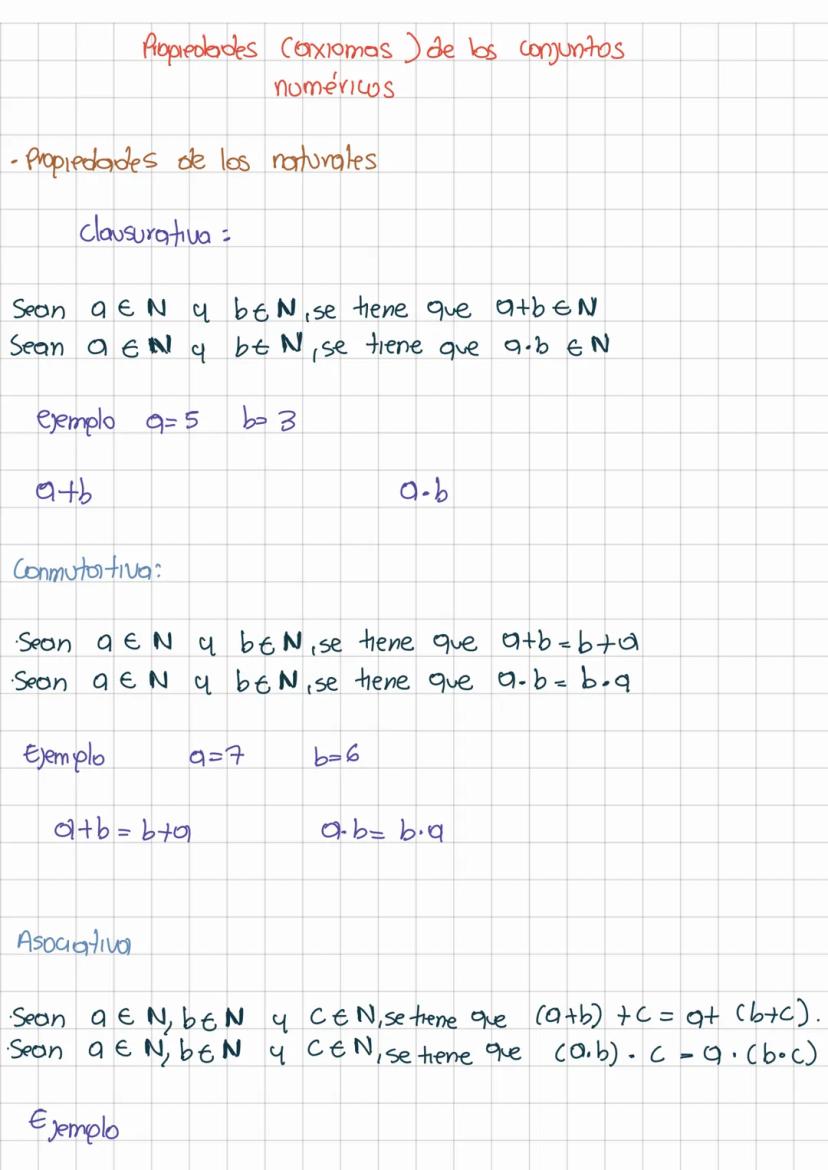 Propiedades (axiomas) de los conjuntos
numéricos
· Propiedades de los naturales
Clausurativa:
Sean a ∈ N y b ∈ N, se tiene que a+b ∈ N
Sean a ∈ N y b ∈ N, se tiene que a·b ∈ N
Ejemplo a=5 b=3
a+b a·b
Conmutativa:
·Sean a ∈ N y b ∈ N, se tiene que a+b = b+a
·Sean a ∈ N y b ∈ N, se tiene que a·b = b·a
Ejemplo a=7 b=6
a+b = b+a a·b = b·a
Asociativa
·Sean a ∈ N, b ∈ N y C ∈ N, se tiene que (a+b) + c = a+ (b+c).
·Sean a ∈ N, b ∈ N y C ∈ N, se tiene que (a·b) · c = a · (b·c)
Ejemplo